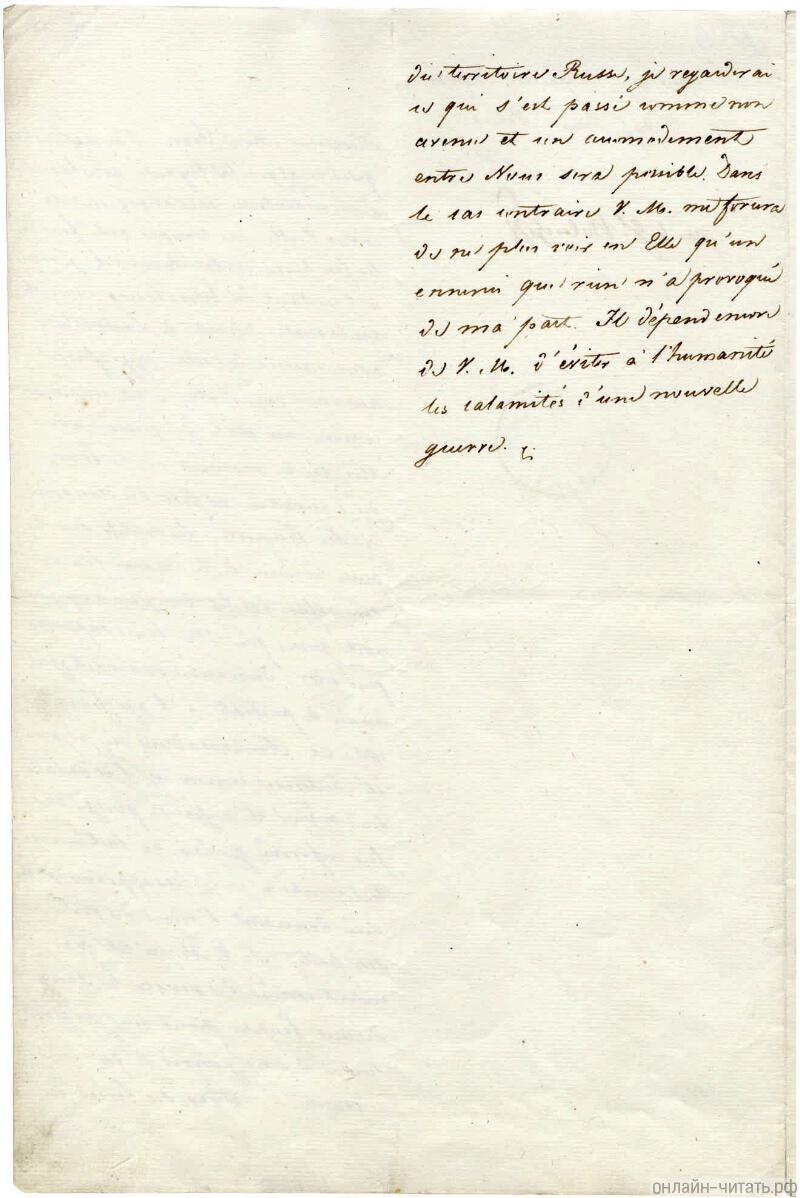 du territoire Russe, je regarderai
ce qui s'est passé comme non
avenu et un accomodement
entre Nous sera possible. Dans
le cas contraire V. M. me forcera
de ne plus voir en Elle qu'un
ennemi que rien n'a provoqué
de ma part. Il dépend encore
de V. M. d'éviter à l'humanité
les calamités d'une nouvelle
guerre.
онлайн-читать.рф